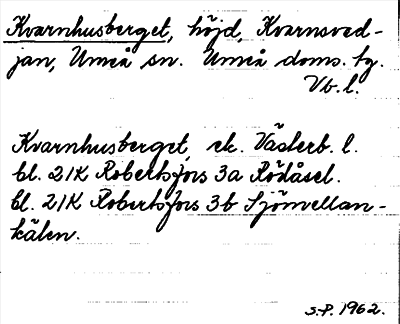 Kvarnhusberget, höjd, Kvarnsved-
jan, Umeå sn. Umeå doms. tg.
Vb. l.
Kvarnhusberget, ek. Västerb. l.
bl. 21K Robertsfors 3a Rödåsel.
bl. 21K Robertsfors 3b Sjömellan-
kälen.
S.P. 1962.